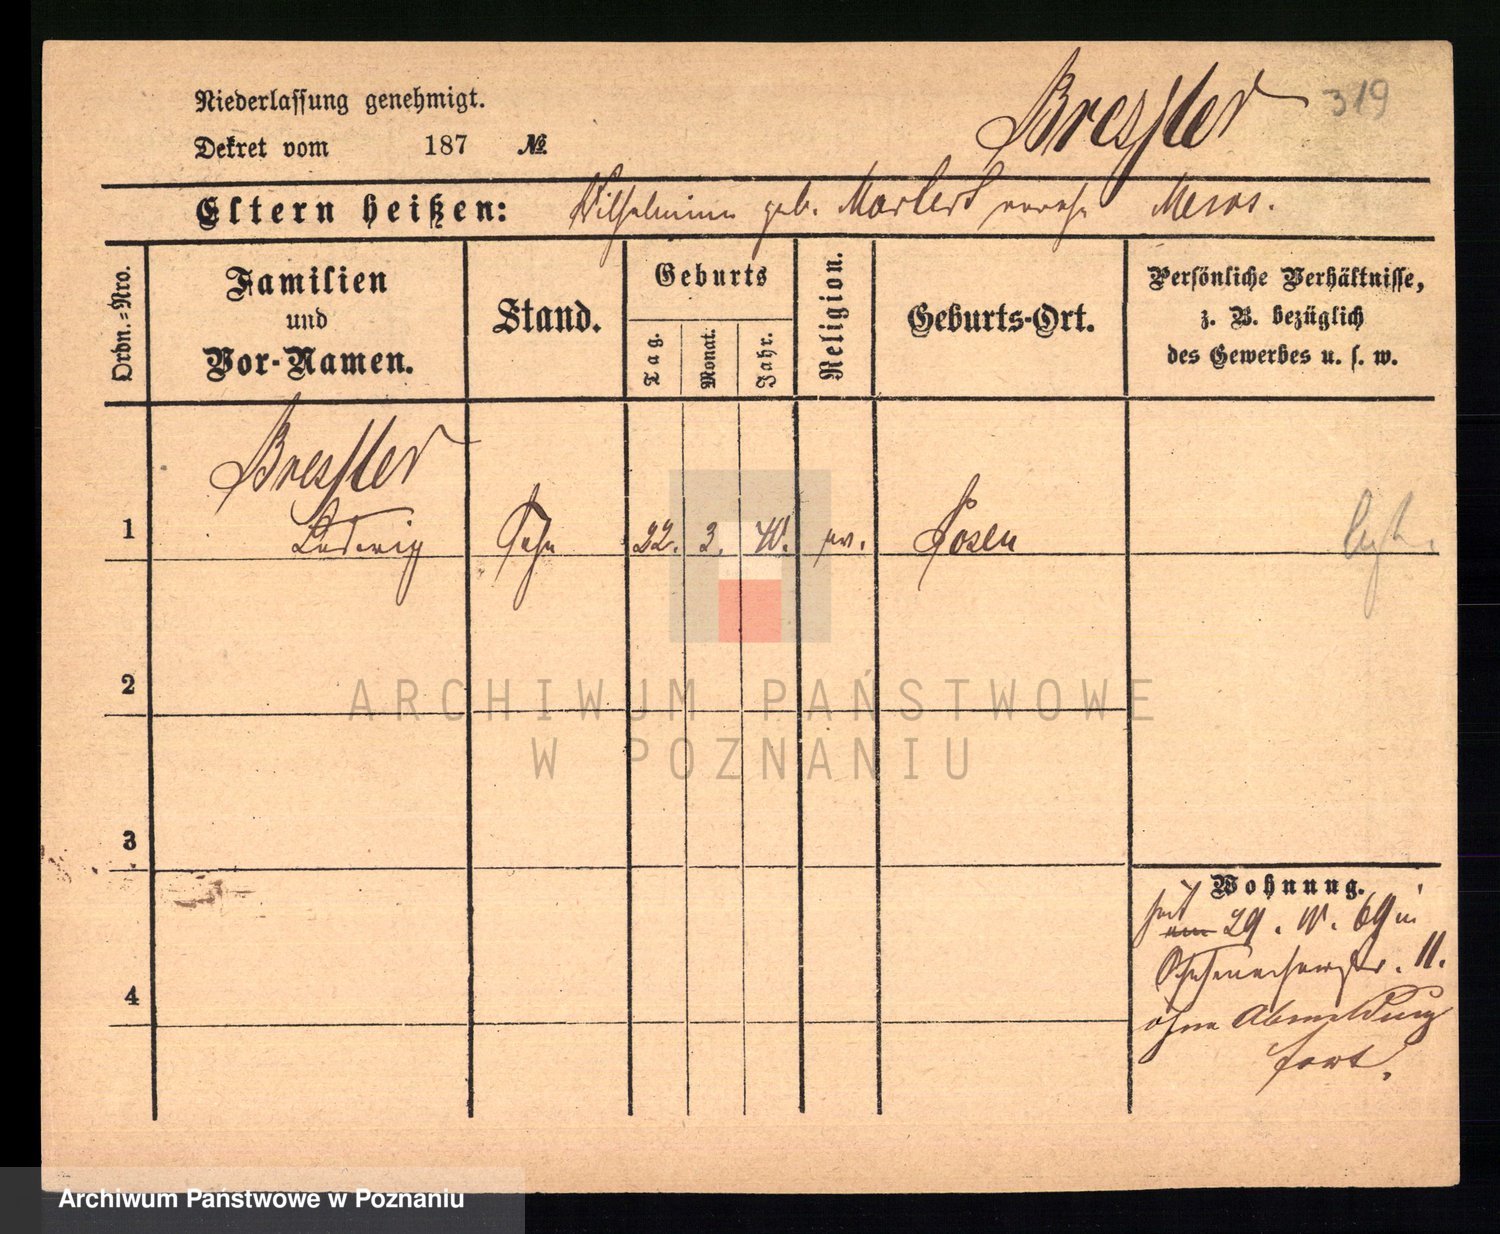 Niederlassung genehmigt.
Dekret vom 187 №
Bressler 319
Eltern heißen: Wilhelmine geb. Markert
Ordn.-Nro.
Familien
und
Vor-Namen.
Stand.
Geburts
Tag.
Monat.
Jahr.
Religion.
Geburts-Ort.
Persönliche Verhältnisse,
z. B. bezüglich
des Gewerbes u. s. w.
Bressler
1 Ludwig Sohn 22. 3. ev. Posen
2
3
4
Wohnung.
seit 29. 69 in
11.
ohne Abmeldung
fort.
ARCHIWUM PAŃSTWOWE
W POZNANIU
Archiwum Państwowe w Poznaniu